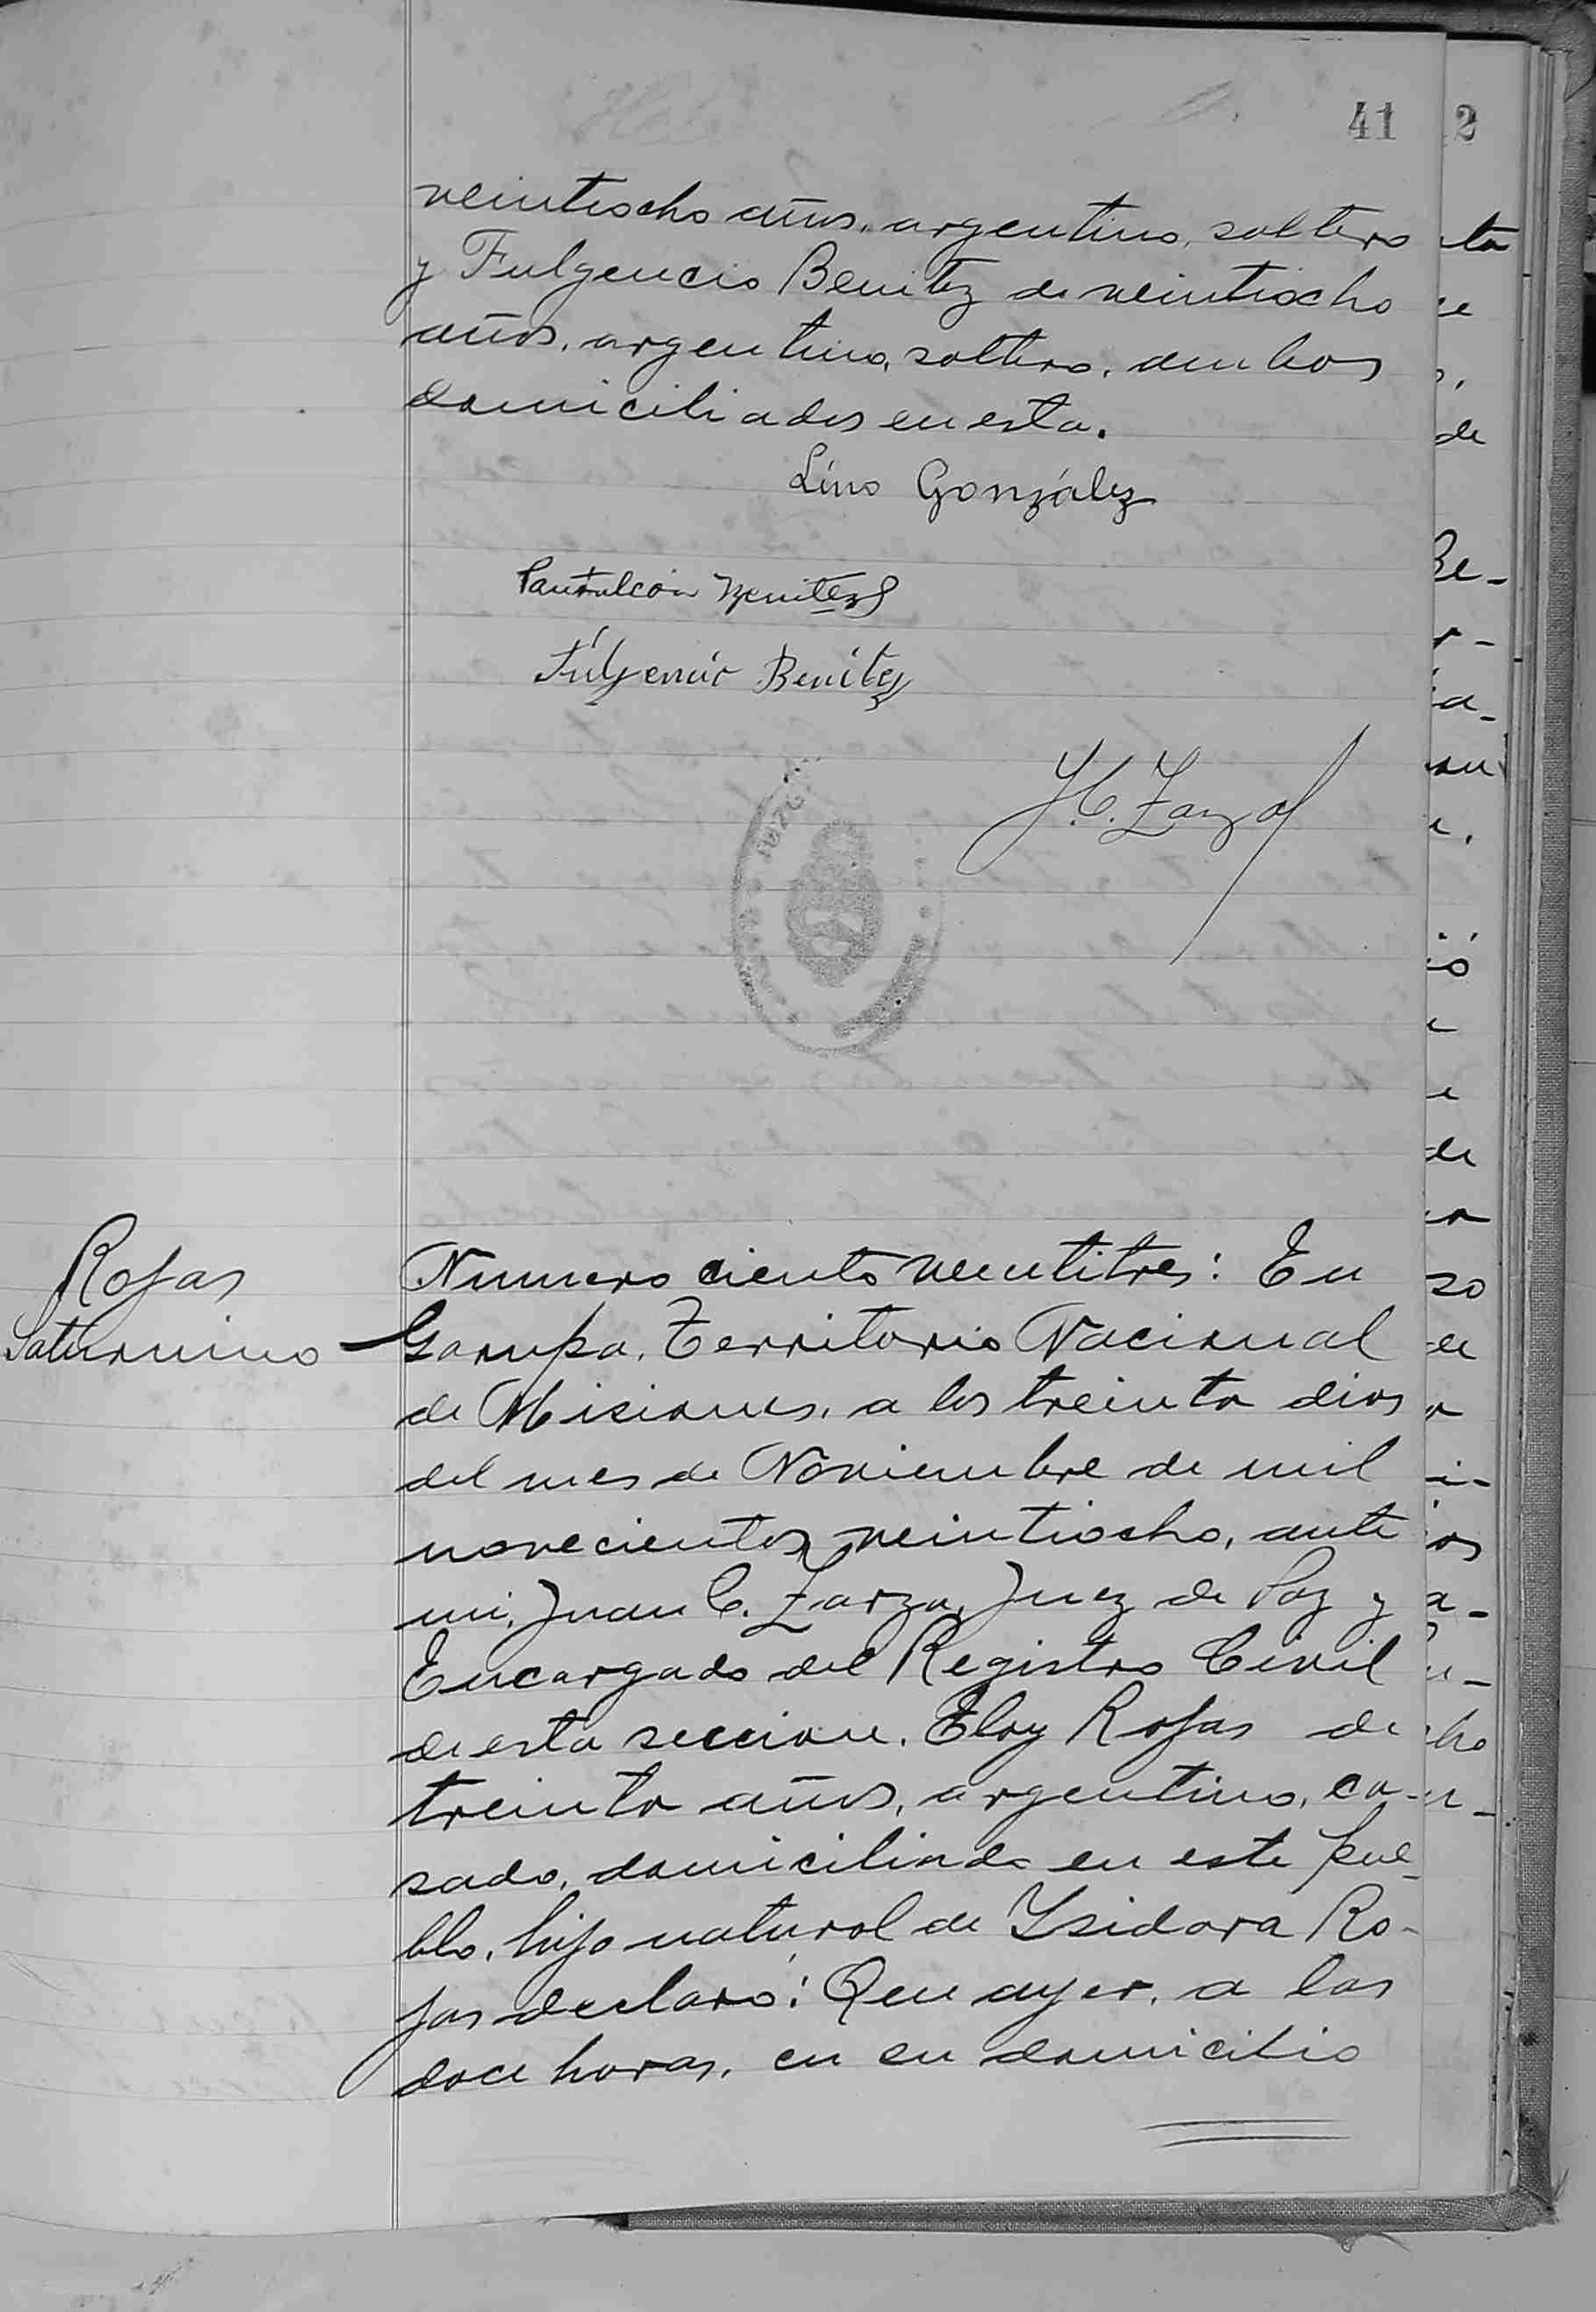 41
veintiocho años, argentino, soltero
y Fulgencio Benitez de veintiocho
años, argentino, soltero, ambos
domiciliados en esta.
Lino González
Pantaleón Benitez
Fulgencio Benítez
J. C. Zarza
Rojas
Saturnino
Numero ciento veintitres: En
Garupa, Territorio Nacional
de Misiones, a los treinta dias
del mes de Noviembre de mil
novecientos veintiocho, ante
mi, Juan C. Zarza, Juez de Paz y
Encargado del Registro Civil
de esta seccion, Eloy Rojas de
treinta años, argentino, ca-
sado, domiciliado en este pue-
blo, hijo natural de Ysidora Ro-
jas declaró: Que ayer, a las
doce horas, en su domicilio